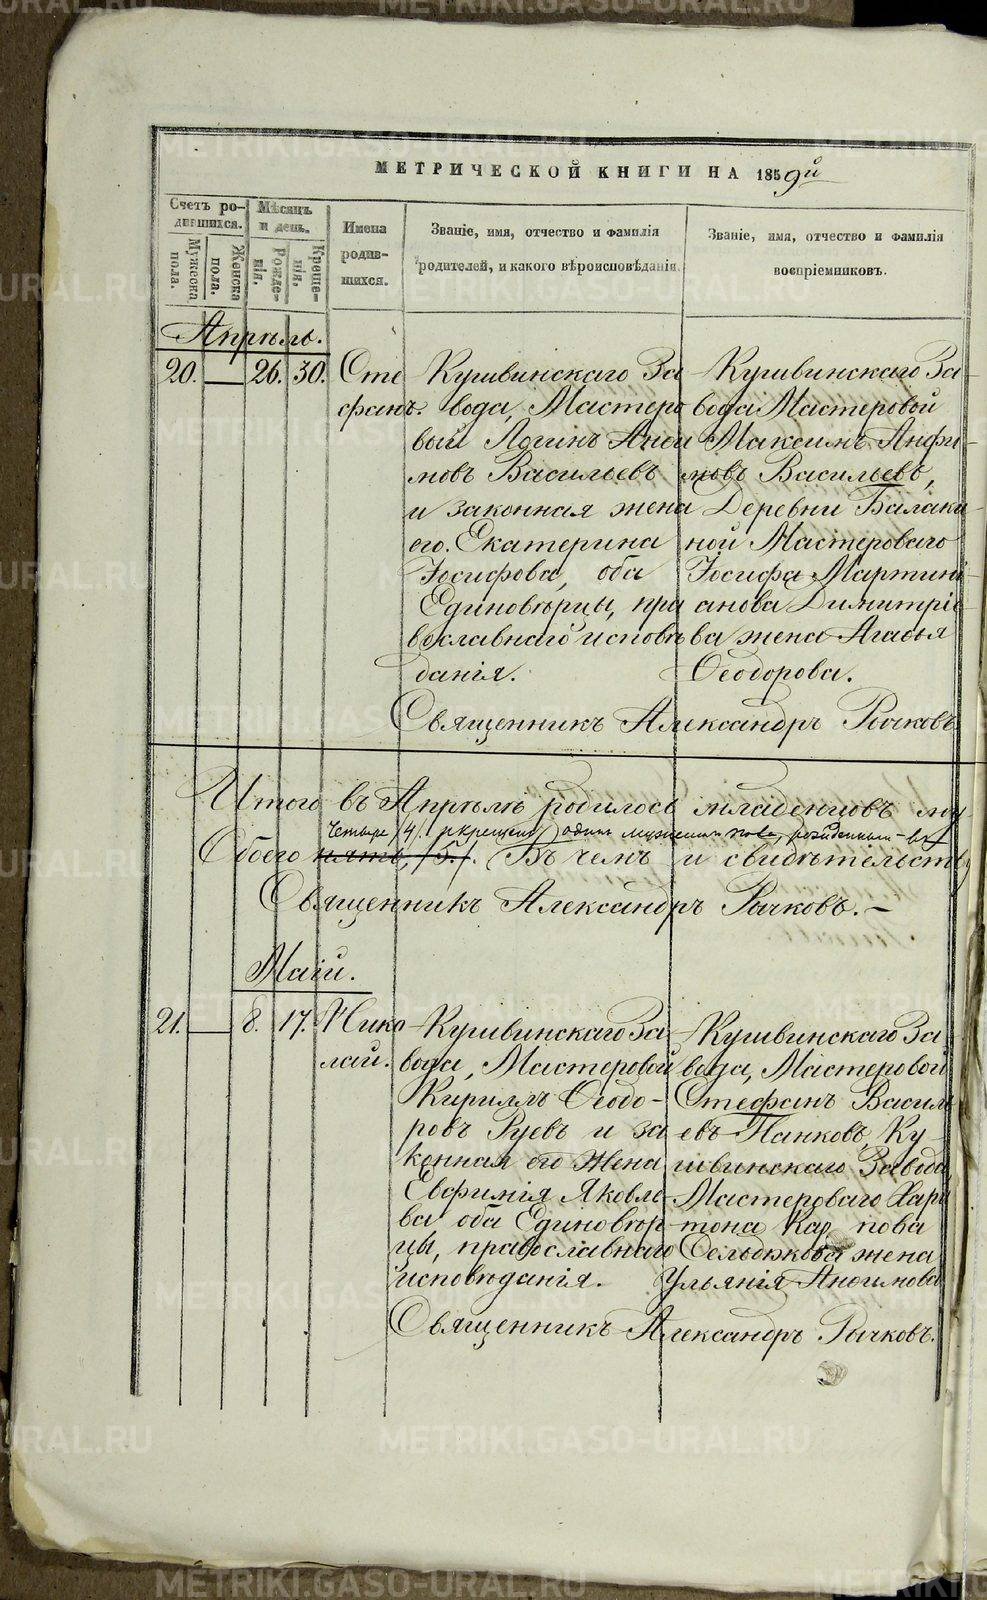 МЕТРИЧЕСКОЙ КНИГИ НА 1859й
Счетъ ро-
дившихся.
Мѣсяцъ
и день.
Мужеска
пола.
Женска
пола.
Рожде-
нія.
Креще-
нія.
Имена
родив-
шихся.
Званіе, имя, отчество и фамилія
родителей, и какого вѣроисповѣданія.
Званіе, имя, отчество и фамилія
воспріемниковъ.
Апрѣль.
20. — 26. 30. Сте
фанъ.
Кушвинскаго За
вода, Мастеро
вый Логинъ Анѳи
мовъ Васильевъ
и законная жена
его Екатерина
Іосифова, оба
Единовѣрцы, пра
вославнаго исповѣ
данія.
Кушвинскаго За-
вода Мастеровой
Максимъ Анфи-
мовъ Васильевъ,
Деревни Балаки-
ной Мастероваго
Іосифа Мартині-
анова Димитріе-
ва жена Агаѳья
Ѳеодорова.
Священникъ Александръ Рычковъ
Итого въ Апрѣлѣ родилось младенцовъ му
четыре /4/. и крещено один мужескаго пола, рожденный въ
Обоего пять, /5/. Въ чемъ и свидѣтельству
Священникъ Александръ Рычковъ. —
Маій.
21. — 8. 17. Нико
лай.
Кушвинскаго За-
вода, Мастеровой
Кириллъ Ѳеодо-
ровъ Руевъ и за
конная его Жена
Евфимія Яковле-
ва оба Единовѣр-
цы, православнаго
исповѣданія.
Кушвинскаго За-
вода, Мастеровой
Стефанъ Василь
евъ Панковъ, Ку-
швинскаго Завода
Мастероваго Хари
тона Кар пова
Сельдюкова жена
Ульянія Анѳимова
Священникъ Александръ Рычковъ.
METRIKI.GASO-URAL.RU